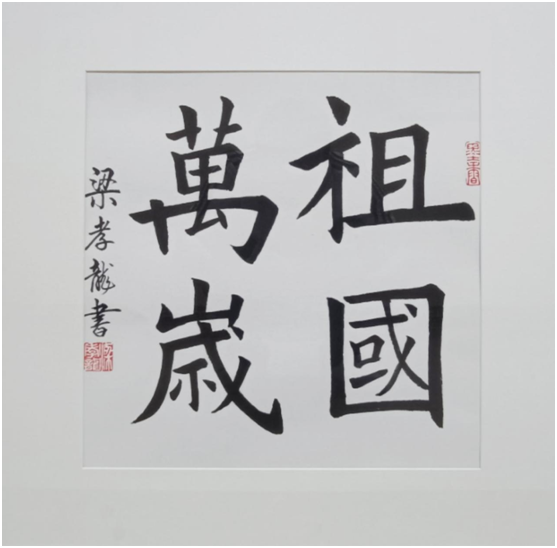 祖國
萬歲
梁孝龍書